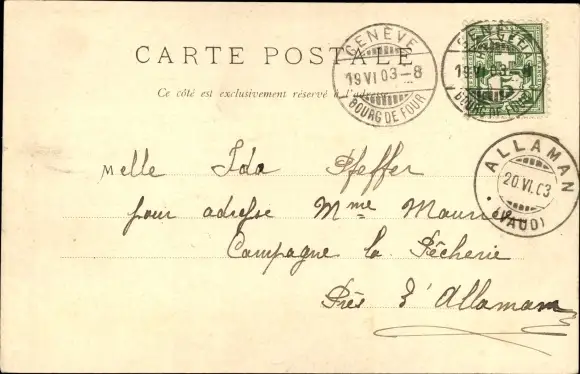 CARTE POSTALE
Ce côté est exclusivement réservé à l'adresse
GENÈVE
19 VI 03–8
BOURG DE FOUR
GENÈVE
19 VI
BOURG DE FOUR
ALLAMAN
20.VI.03
(VAUD)
Melle Ida Pfeffer
pour adresse Mme
Campagne la Pêcherie
Près d'Allaman